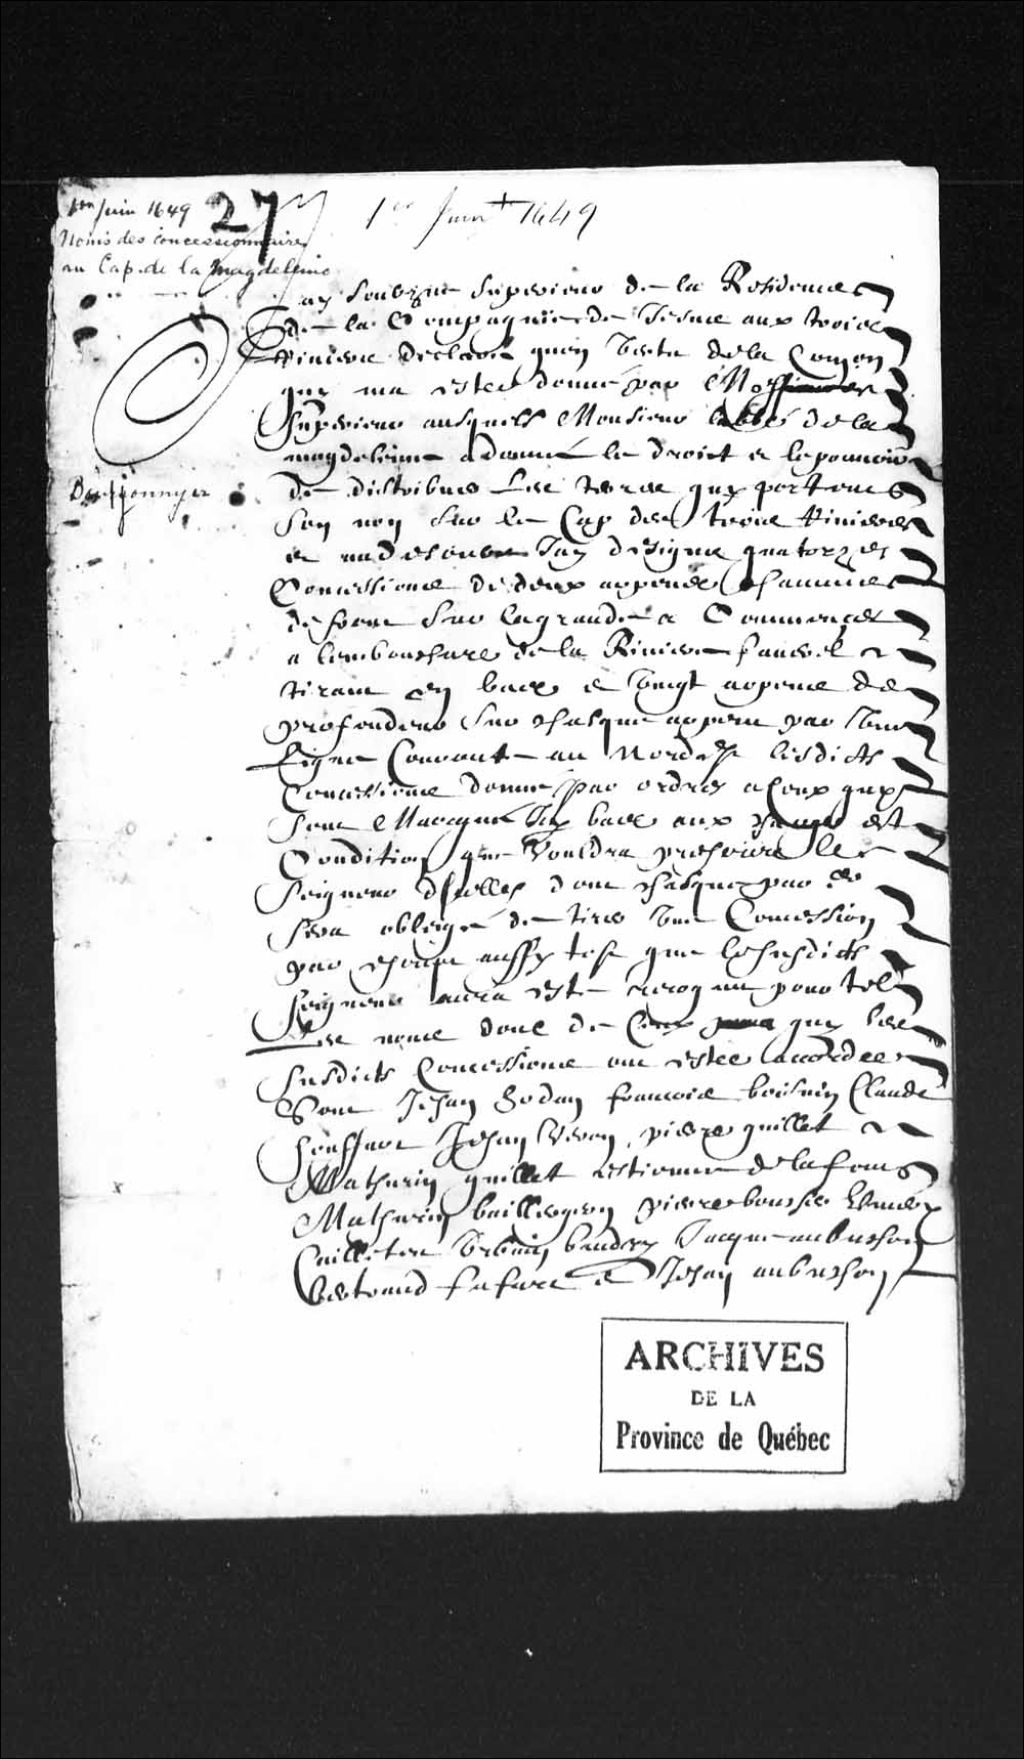 1er Juin 1649
27
1er Juin + 1649
Noms des concessionnaires
au Cap de la Magdeleine
ay Soubzne Superieur de la Residence
de la Compagnie de Jesus aux trois
Rivieres declare quen vertu de la Comon
que ma estee donné par
Superieur ausquels Monsieur labbé de la
magdeleine a donné le droict et le pouvoir
de distribuer Les terres qui portent
son nom sur le Cap des trois Rivieres
et Jay designé quatorze
Concessions de deux arpens chacune
de front sur la grande a Commencer
a lembouchure de la Riviere faverel
tirant en bas et vingt arpens de
profondeur sur chasque arpent par une
Ligne Courante au Nordest lesdicts
Concessions donne par ordre a Ceux qui
sont Marqué Icy bas aux et
Condition que vouldra prescrire le
Seigneur dicelles dont chasque par
sera obligé de tirer une Concession
par aussy tost que lesusdicts
seigneur aura este pour tel
Les noms donc de Ceux qui les
susdicts Concessions ont estee accordees
Sont Jehan Godan francois boivin Claude
houssart Jehan Veron pierre guillet
Mathurin guillet estienne de lafont
Mathurin baillargeon pierre
Cailleteau Urbain baudry Jacques aubuchon
bertrand fafart et Jehan aubuchon
ARCHIVES
DE LA
Province de Québec